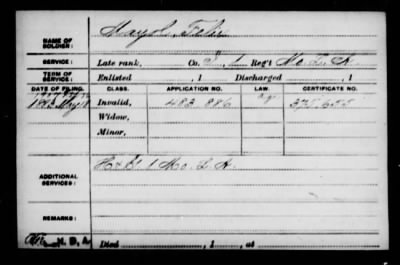 NAME OF SOLDIER: Mayol, Felix
SERVICE: Late rank, Co. I, 1 Reg't Mo. L. A.
TERM OF SERVICE: Enlisted , 1 Discharged , 1
DATE OF FILING. CLASS. APPLICATION NO. LAW. CERTIFICATE NO.
Invalid, 483.886 375.655
Widow,
Minor,
ADDITIONAL SERVICES: 1 Mo. L. A.
REMARKS:
Died , 1 , at